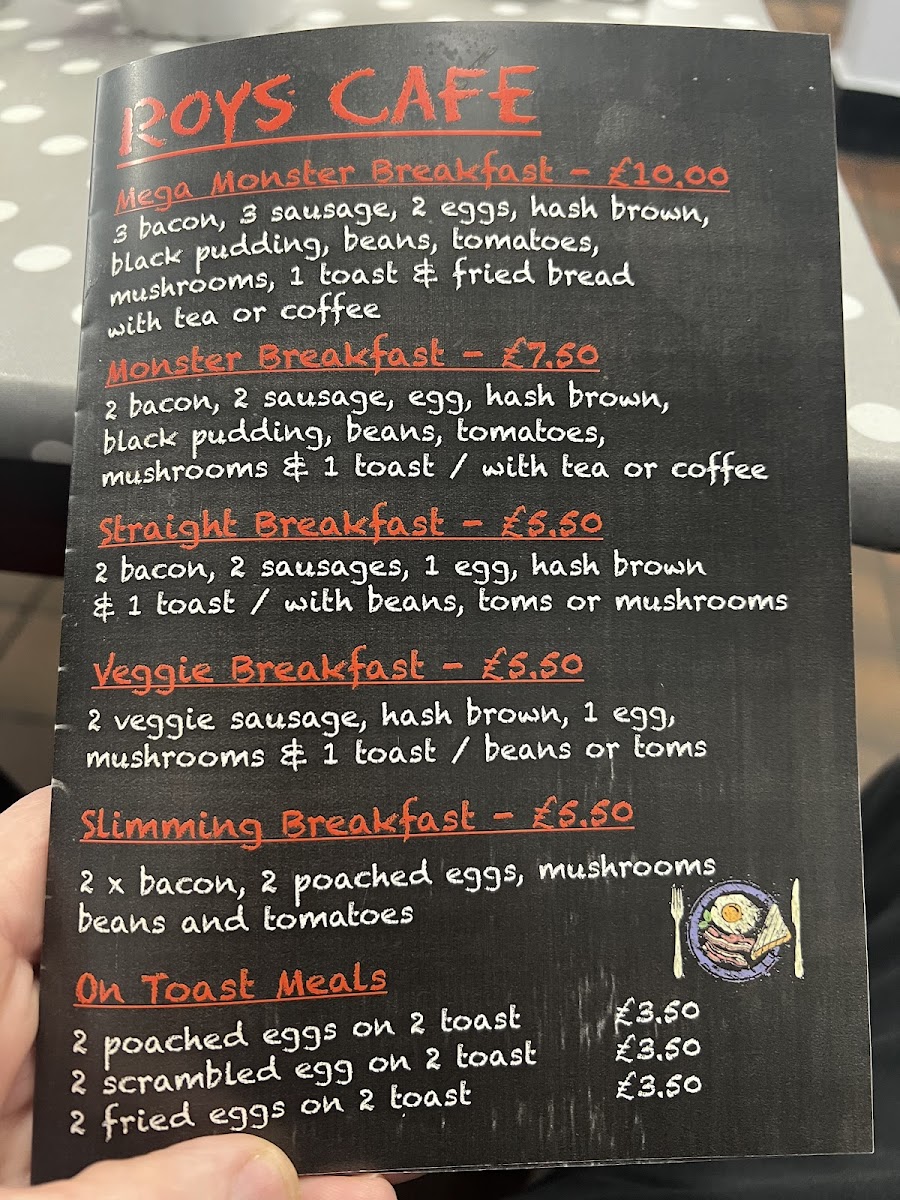 ROYS CAFE
Mega Monster Breakfast - £10.00
3 bacon, 3 sausage, 2 eggs, hash brown,
black pudding, beans, tomatoes,
mushrooms, 1 toast & fried bread
with tea or coffee
Monster Breakfast - £7.50
2 bacon, 2 sausage, egg, hash brown,
black pudding, beans, tomatoes,
mushrooms & 1 toast / with tea or coffee
Straight Breakfast - £5.50
2 bacon, 2 sausages, 1 egg, hash brown
& 1 toast / with beans, toms or mushrooms
Veggie Breakfast - £5.50
2 veggie sausage, hash brown, 1 egg,
mushrooms & 1 toast / beans or toms
Slimming Breakfast - £5.50
2 x bacon, 2 poached eggs, mushrooms
beans and tomatoes
On Toast Meals
2 poached eggs on 2 toast £3.50
2 scrambled egg on 2 toast £3.50
2 fried eggs on 2 toast £3.50